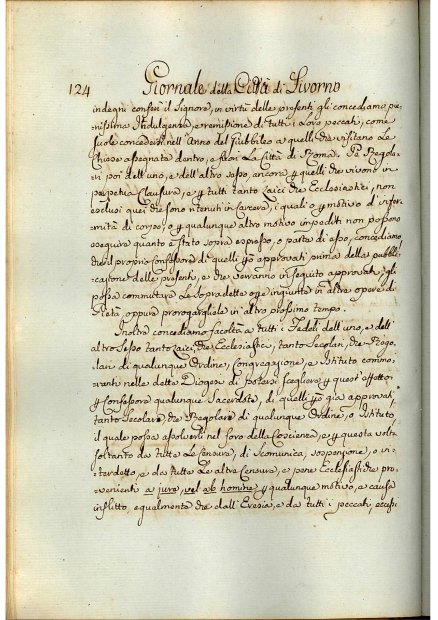 124 Giornale della Città di Livorno
indegni conferì il Signore, in virtù delle presenti gli concediamo, ple¬
nissima Indulgenza, e remissione di tutti i loro peccati, come
suole concedersi nell'Anno del Giubbileo a quelli che visitano le
Chiese assegnata dentro, e fuori la Città di Roma. Pe' Regola¬
ri poi dell'uno, e dell'altro sesso, ancora p quelli che vivono in
perpetua Clausura, e p tutti tanto Laici che Ecclesiastici, non
esclusi quei che sono ritenuti in Carcere, i quali o p motivo d'infer¬
mità di corpo, o p qualunque altro motivo impediti non possono
eseguire quanto è stato sopra espresso, o parte di esso, concediamo
che il proprio Confessore di quelli già approvati prima della pubbli¬
cazione delle presenti, e che verranno in seguito approvati, gli
possa commutare le sopradette opere ingiunte in altro opere di
Pietà, oppure prorogargliele in altro prossimo tempo.
Inoltre concediamo facoltà a tutti i Fedeli dell'uno, e dell'
altro Sesso tanto Laici, che Ecclesiastici, tanto Secolari, che Rego¬
lari di qualunque Ordine, Congregazione, e Istituto commo¬
ranti nelle dette Diogesi di potersi scegliere p quest'effetto
p Confessore qualunque Sacerdote, di quelli già approvati,
tanto Secolare, che Regolare di qualunque Ordine, o Istituto,
il quale possa assolverli nel foro della Coscienza, e p questa volta
soltanto da tutte le Censure, di Scomunica, sospensione, o in¬
terdetto, e da tutte le altre Censure, e pene Ecclesiastiche pro¬
venienti a jure, vel ab homine p qualunque motivo, e causa
inflitto, egualmente che dall'Eresia, e da tutti i peccati, eccessi